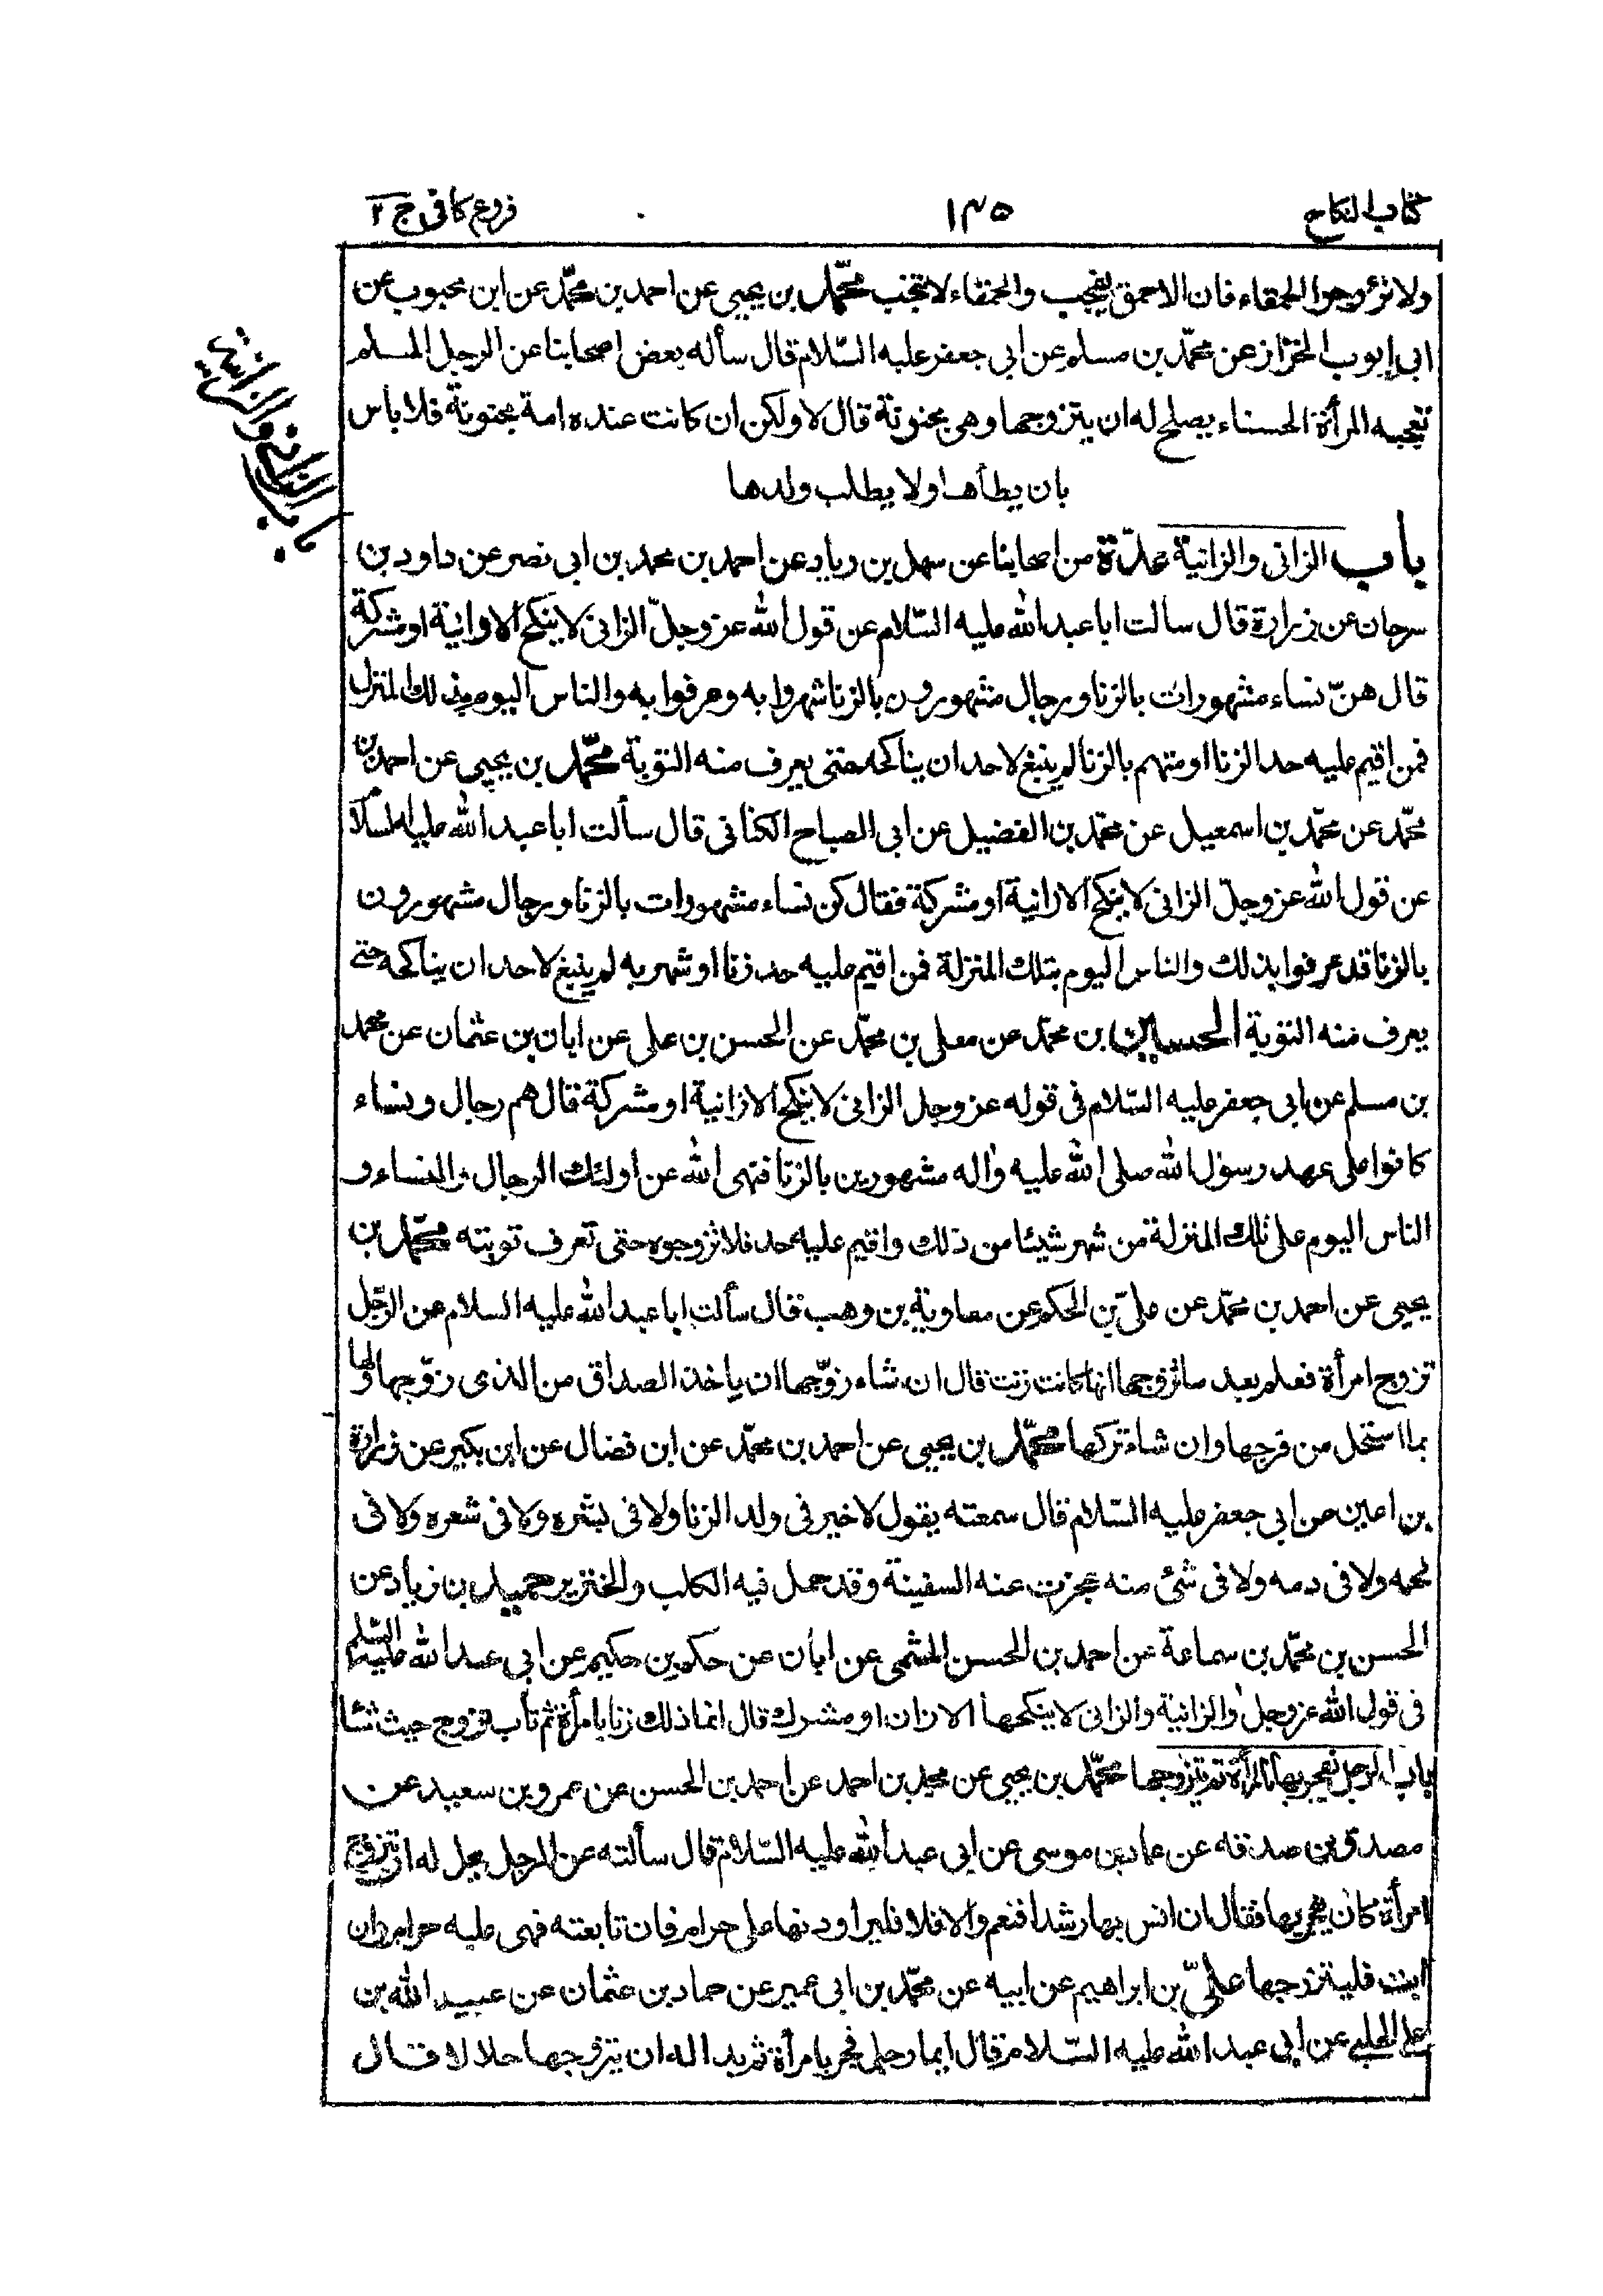 كتاب النكاح ١٣٥ فروع كافى ج ٢
ولا تزوجوا الحمقاء فان الاحمق ينجب والحمقاء لا تنجب محمّد بن يحيى عن احمد بن محمّد عن ابن محبوب عن
ابى ايوب الخزاز عن محمّد بن مسلم عن ابى جعفر عليه السّلام قال سأله بعض اصحابنا عن الرجل المسلم
تعجبه المرأة الحسناء يصلح له ان يتزوجها وهى مجنونة قال لا ولكن ان كانت عنده امة مجنونة فلا باس
بان يطأها ولا يطلب ولدها
باب الزانى والزانية عدّة من اصحابنا عن سهل بن زياد عن احمد بن محمد بن ابى نصر عن داود بن
سرحان عن زرارة قال سالت ابا عبد الله عليه السّلام عن قول الله عز وجلّ الزانى لا ينكح الا زانية او مشركة
قال هنّ نساء مشهورات بالزنا ورجال مشهورون بالزنا شهروا به وعرفوا به والناس اليوم بذلك المنزل
فمن اقيم عليه حد الزنا او متهم بالزنا لم ينبغ لاحد ان يناكحه حتى يعرف منه التوبة محمّد بن يحيى عن احمد بن
محمّد عن محمّد بن اسمعيل عن محمّد بن الفضيل عن ابى الصباح الكنانى قال سألت ابا عبد الله عليه السلام
عن قول الله عز وجلّ الزانى لا ينكح الا زانية او مشركة فقال كن نساء مشهورات بالزنا ورجال مشهورون
بالزنا قد عرفوا بذلك والناس اليوم بتلك المنزلة فمن اقيم عليه حد زنا او شهر به لم ينبغ لاحد ان يناكحه حتى
يعرف منه التوبة الحسين بن محمّد عن معلى بن محمّد عن الحسن بن على عن ابان بن عثمان عن محمد
بن مسلم عن ابى جعفر عليه السّلام فى قوله عز وجل الزانى لا ينكح الا زانية او مشركة قال هم رجال ونساء
كانوا على عهد رسول الله صلى الله عليه واله مشهورين بالزنا فنهى الله عن اولئك الرجال والنساء و
الناس اليوم على تلك المنزلة من شهر شيئا من ذلك واقيم عليه حد فلا تزوجوه حتى تعرف توبته محمّد بن
يحيى عن احمد بن محمّد عن علىّ بن الحكم عن معاوية بن وهب قال سألت ابا عبد الله عليه السلام عن الرّجل
تزوج امرأة فعلم بعد ما تزوجها انها كانت زنت قال ان شاء زوّجها ان ياخذ الصداق من الذى زوّجها ولها
بما استحل من فرجها وان شاء تركها محمّد بن يحيى عن احمد بن محمّد عن ابن فضال عن ابن بكير عن زرارة
بن اعين عن ابى جعفر عليه السّلام قال سمعته يقول لا خير فى ولد الزنا ولا فى بشره ولا فى شعره ولا فى
لحمه ولا فى دمه ولا فى شئ منه عجزت عنه السفينة وقد حمل فيه الكلب والخنزير حميد بن زياد عن
الحسن بن محمّد بن سماعة عن احمد بن الحسن الميثمى عن ابان عن حكم بن حكيم عن ابى عبد الله عليه السّلم
فى قول الله عز وجل والزانية والزانى لا ينكحها الا زان او مشرك قال انما ذلك زنا بامرأة ثم تاب تزوج حيث شا
باب الرجل يفجر بها بالمرأة ثم يتزوجها محمّد بن يحيى عن محمد بن احمد عن احمد بن الحسن عن عمرو بن سعيد عن
مصدق بن صدقه عن عمار بن موسى عن ابى عبد الله عليه السّلام قال سألته عن الرجل يحل له ان يتزوج
امرأة كان يفجر بها فقال ان انس بها رشدا فنعم والا فلا فليراودنها على حرام فان تابعته فهى عليه حرام وان
ابت فليتزوجها علىّ بن ابراهيم عن ابيه عن محمّد بن ابى عمير عن حماد بن عثمان عن عبيد الله بن
على الحلبى عن ابى عبد الله عليه السّلام قال ايما رجل فجر بامرأة ثم بدا له ان يتزوجها حلالا قال